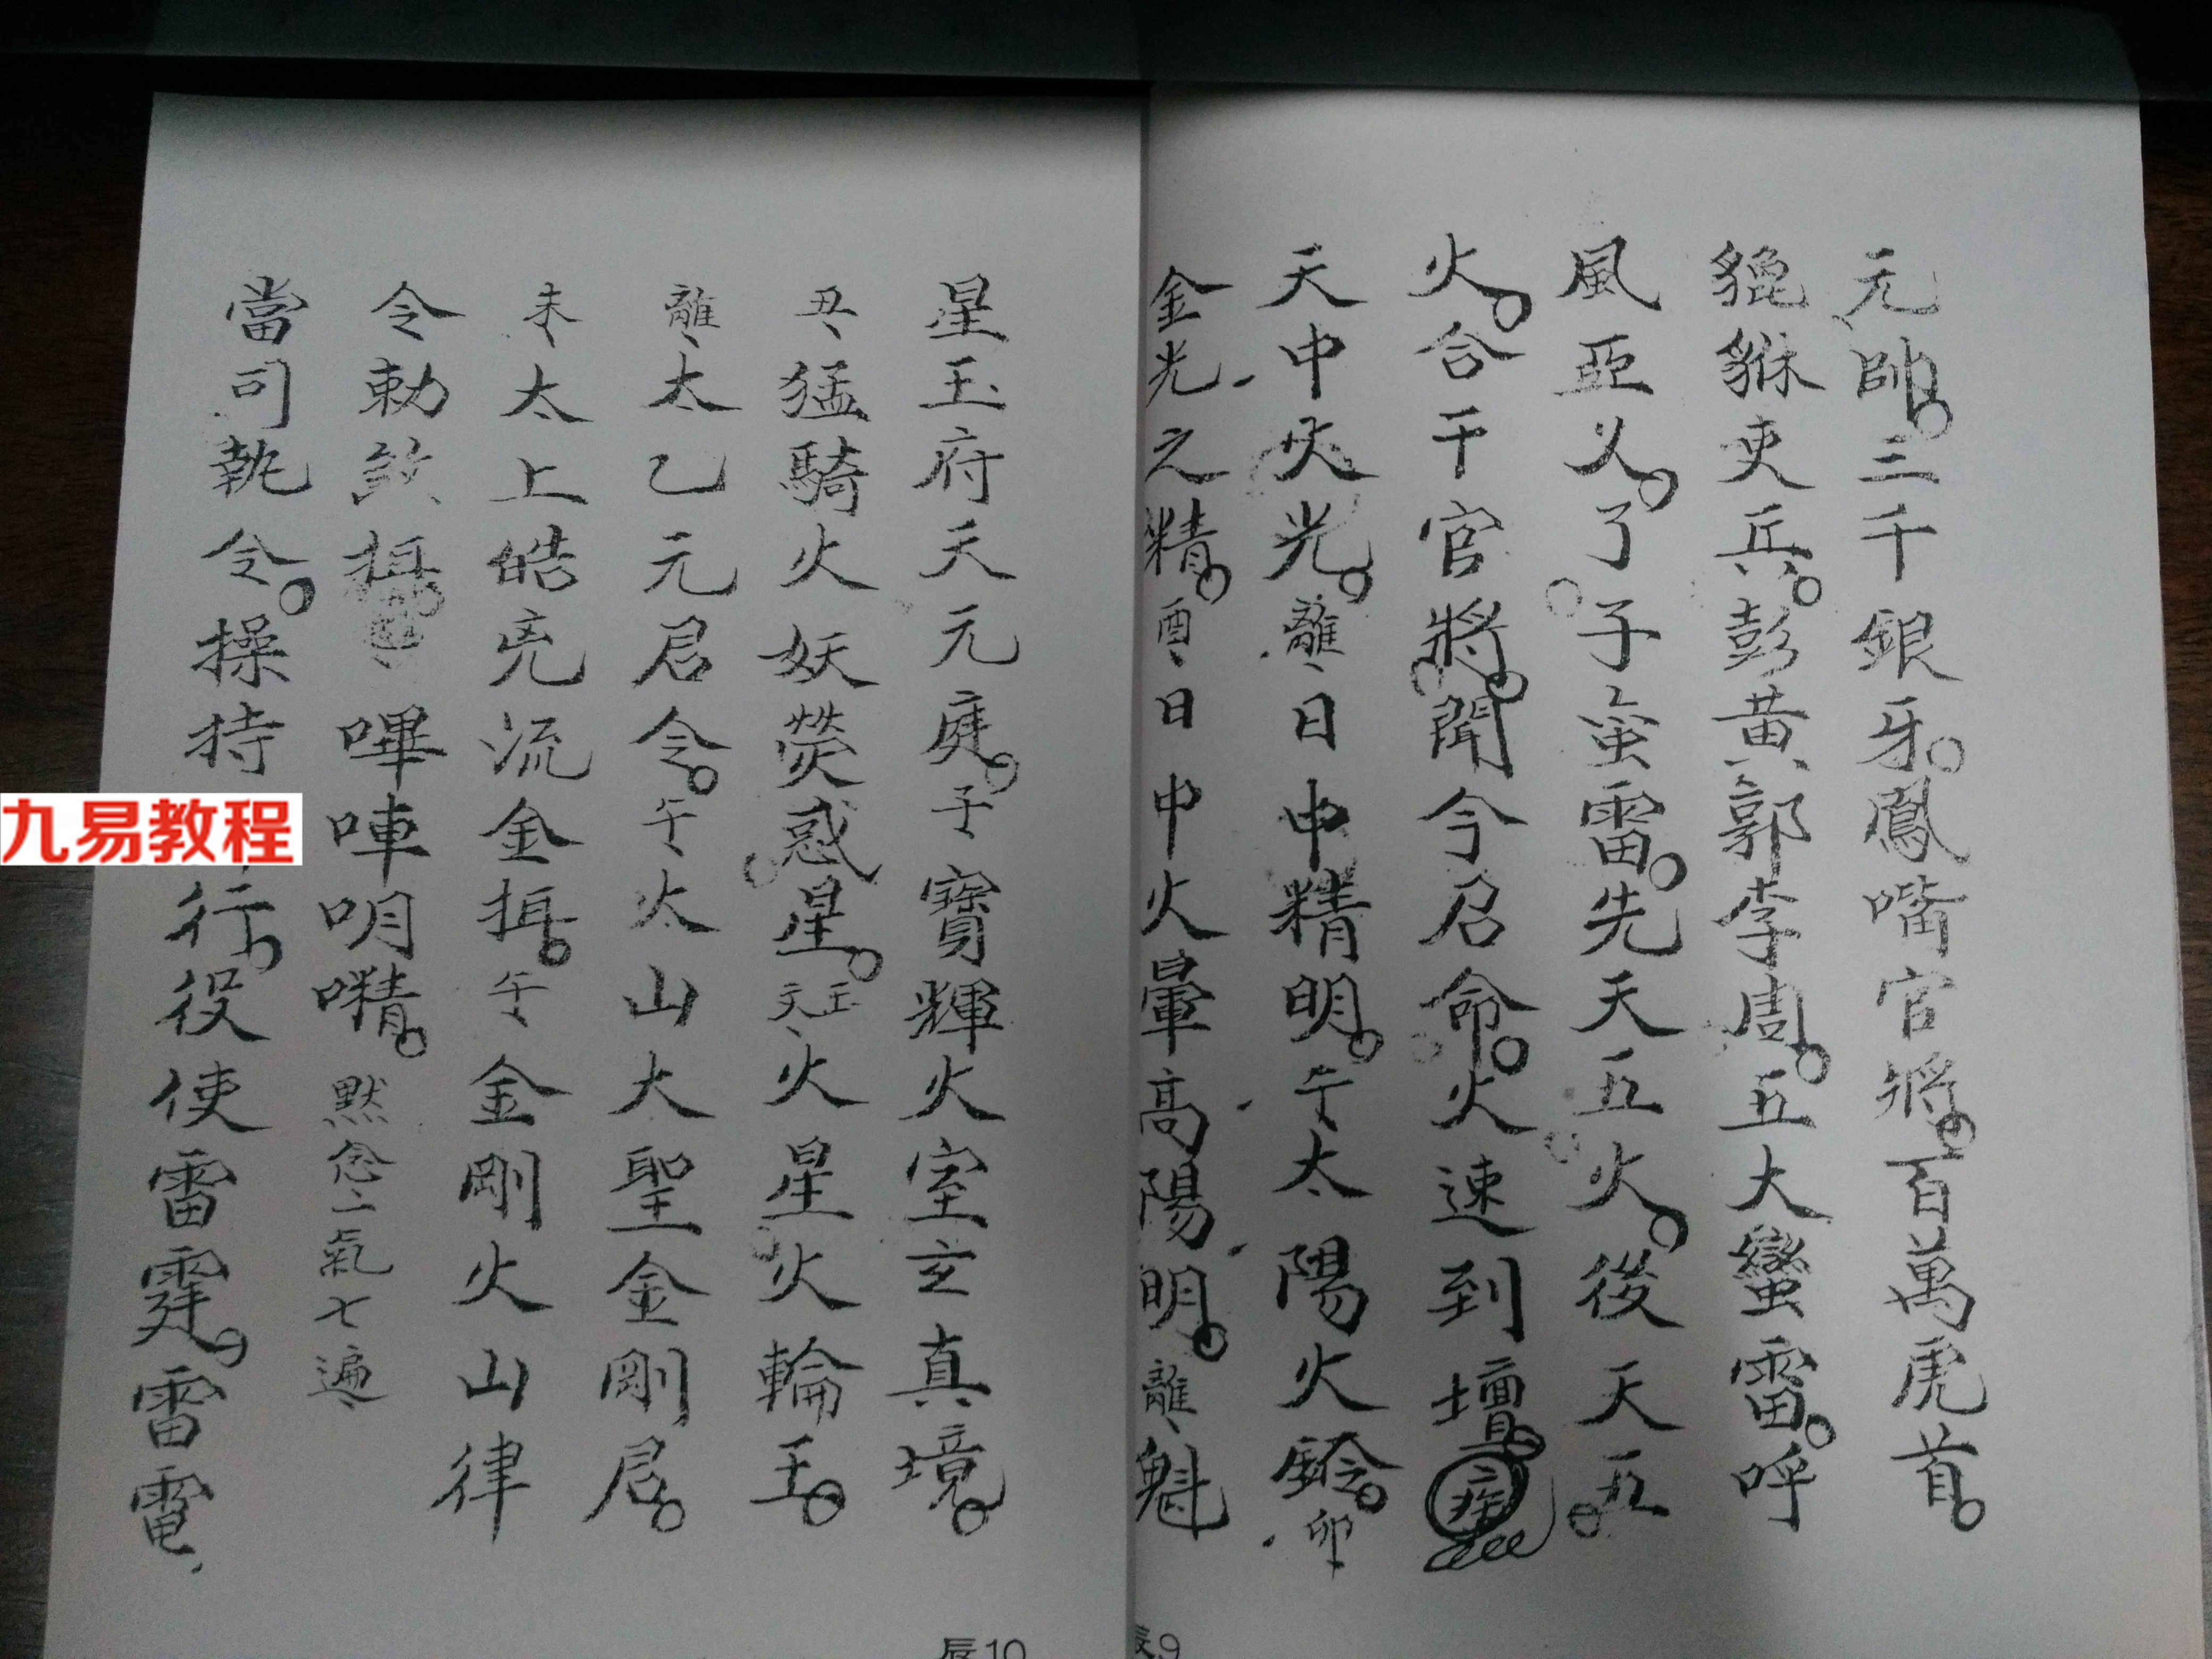 元帥三千銀牙鳳嘴官將百萬虎首
貔貅吏兵彭黃郭李周五大蠻雷呼
風亞火了子蛮雷先天五火後天五
火合干官將聞今召命火速到壇
天中火光離日中精明午太陽火鈴卯
金光之精酉日中火暈高陽明離魁
辰9
星玉府天元庭子寶輝火室玄真境
丑猛騎火妖熒惑星火星火輪王
離太乙元君令午火山大聖金剛君
未太上皓兇流金午金剛火山律
令勅煞嗶唓明㘜默念二氣七遍
當司執令操持行役使雷霆雷電
辰10
九易教程